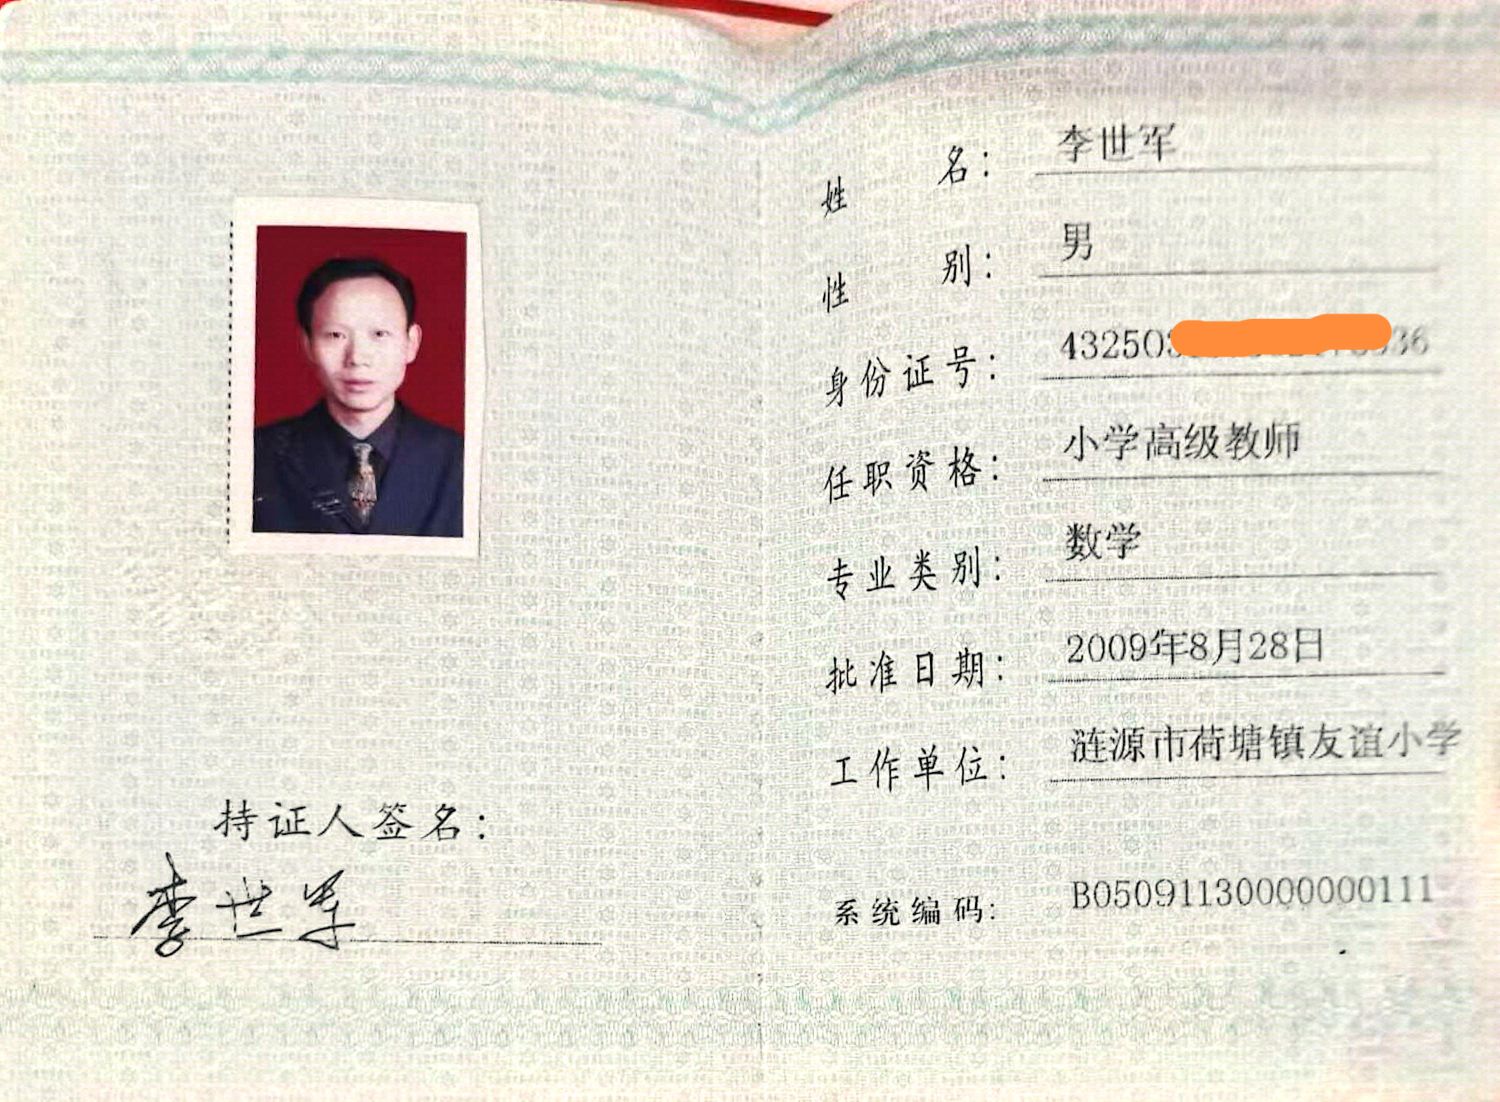 持证人签名：
李世军
姓名：李世军
性别：男
身份证号：43250336
任职资格：小学高级教师
专业类别：数学
批准日期：2009年8月28日
工作单位：涟源市荷塘镇友谊小学
系统编码：B05091130000000111